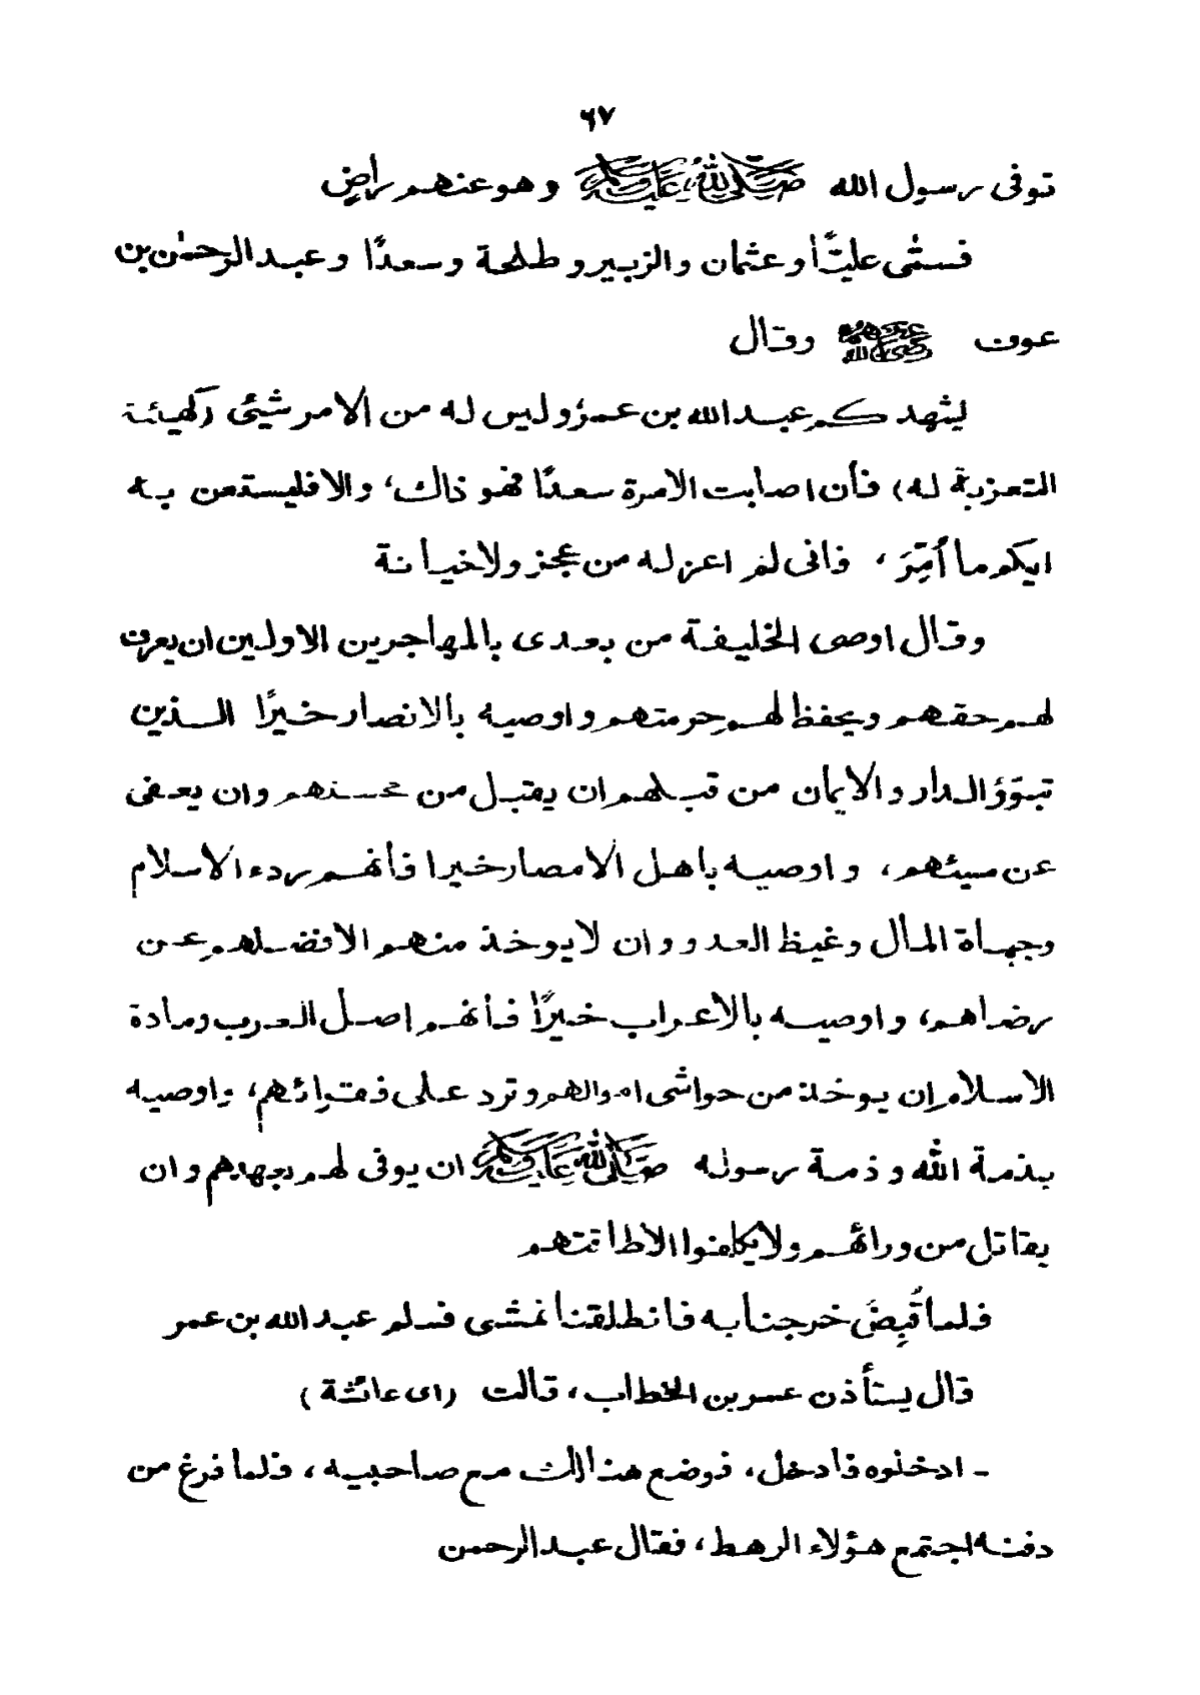 ٦٧
توفى رسول الله ﷺ وهو عنهم راضٍ
فسمّى عليًّا وعثمان والزبير وطلحة وسعدًا وعبد الرحمٰن بن
عوف رضى الله عنهم وقال
ليشهدكم عبد الله بن عمرؤ وليس له من الامر شيئى (كهيئة
التعزية له) فأن اصابت الامرة سعدًا فهو ذاك، والا فليستعن به
ايكم ما أُمِّرَ، فانى لم اعزله من عجز ولا خيانة
وقال اوصى الخليفة من بعدى بالمهاجرين الاولين ان يعرف
لهم حقهم ويحفظ لهم حرمتهم واوصيه بالانصار خيرًا الذين
تبوّؤ الدار والايمان من قبلهم ان يقبل من محسنهم وان يعفى
عن مسيئهم، واوصيه باهل الامصار خيرا فأنهم ردء الاسلام
وجباة المال وغيظ العدو وان لا يوخذ منهم الا فضلهم عن
رضاهم، واوصيه بالاعراب خيرًا فأنهم اصل العرب ومادة
الاسلام ان يوخذ من حواشى اموالهم وترد على فقرائهم، واوصيه
بذمة الله وذمة رسوله ﷺ ان يوفى لهم بعهدهم وان
يقاتل من ورائهم ولا يكلفوا الا طاقتهم
فلما قُبِضَ خرجنا به فانطلقنا نمشى فسلم عبد الله بن عمر
قال يستأذن عمر بن الخطاب، قالت (اى عائشة)
- ادخلوه فادخل، فوضع هنالك مع صاحبيه، فلما فرغ من
دفنه اجتمع هؤلاء الرهط، فقال عبد الرحمن